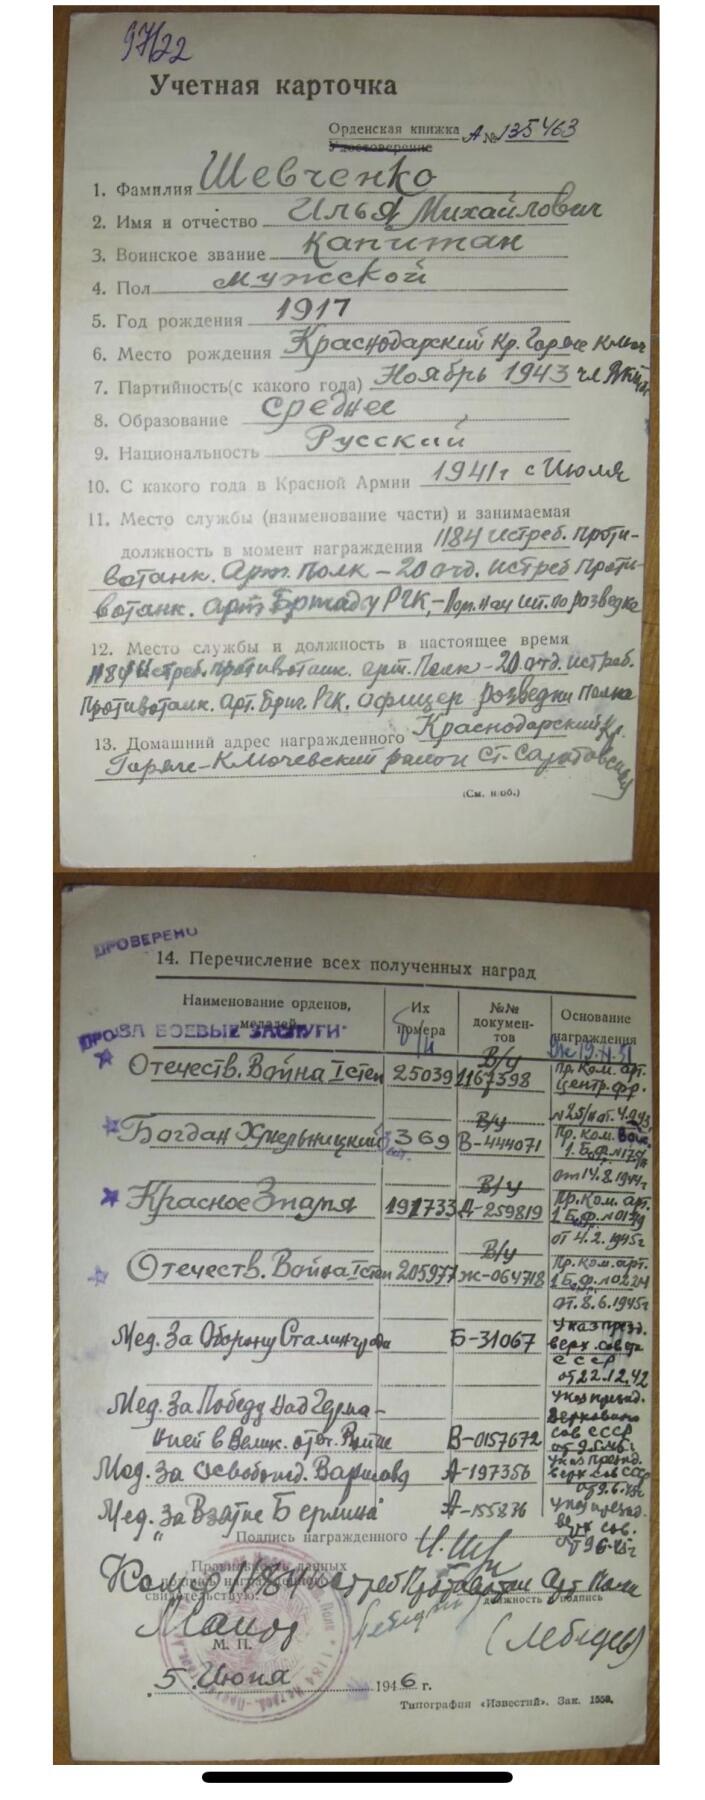 97/22
Учетная карточка
Орденская книжка А № 135463
Удостоверение
1. Фамилия Шевченко
2. Имя и отчество Илья Михайлович
3. Воинское звание Капитан
4. Пол мужской
5. Год рождения 1917
6. Место рождения Краснодарский Кр. Горяче Ключ
7. Партийность(с какого года) Ноябрь 1943 чл ВКП
8. Образование среднее
9. Национальность Русский
10. С какого года в Красной Армии 1941г с Июля
11. Место службы (наименование части) и занимаемая
должность в момент награждения 1184 истреб. Проти-
вотанк. Арт. Полк – 20 отд. истреб Проти-
вотанк. арт Бригады РГК, – Пом. Нач шт. по разведке
12. Место службы и должность в настоящее время
1184 Истреб. противотанк. арт. Полк – 20 отд. истреб.
Противотанк. Арт. Бриг. РГК. офицер разведки Полка
13. Домашний адрес награжденного Краснодарский Кр.
Горяче-Ключевский район Ст. Саратовская
(См. н об.)
ПРОВЕРЕНО
14. Перечисление всех полученных наград
Наименование орденов, медалей
Их номера
№№ докумен-тов
Основание награждения
ЗА БОЕВЫЕ ЗАСЛУГИ
Ук 19.XI.51
Отечеств. Война I степ 25039 В/у 1167398 Пр. Ком. арт. Центр. фр.
Богдан Хмельницкий 3 369 В/у В-444071 Пр. Ком.
1 Б.ф.
от 14.8.1944г
Красное Знамя 191733 В/у А-259819 Пр. Ком. арт.
1 Б.ф.
от 4.2.1945г
Отечеств. Война I степ 205977 В/у Ж-064718 Пр. Ком. арт.
1 Б.ф. №0224
от 8.6.1945г
Мед. За Оборону Сталинграда Б-31067 Указ през. верх. совета
СССР
от 22.12.42
Мед. За Победу Над Герма-
нией в Велик. отеч. Войне В-0157672 Указ презид. Верховного
сов СССР
от 9.5.45г
Мед. За освобожд. Варшавы А-197356 Указ презид. верх сов СССР
от 9.6.45г
Мед. „За Взятие Берлина" А-155836 Указ презид.
верх сов.
от 9.6.45г
Подпись награжденного
Правильность данных
и подпись награжденного
свидетельствую:
Комдр 1184 истреб Противотан Арт Полка
должность и подпись
Майор
(Лебедев)
М. П.
„5" Июня 1946 г.
Типография «Известий». Зак. 1559.